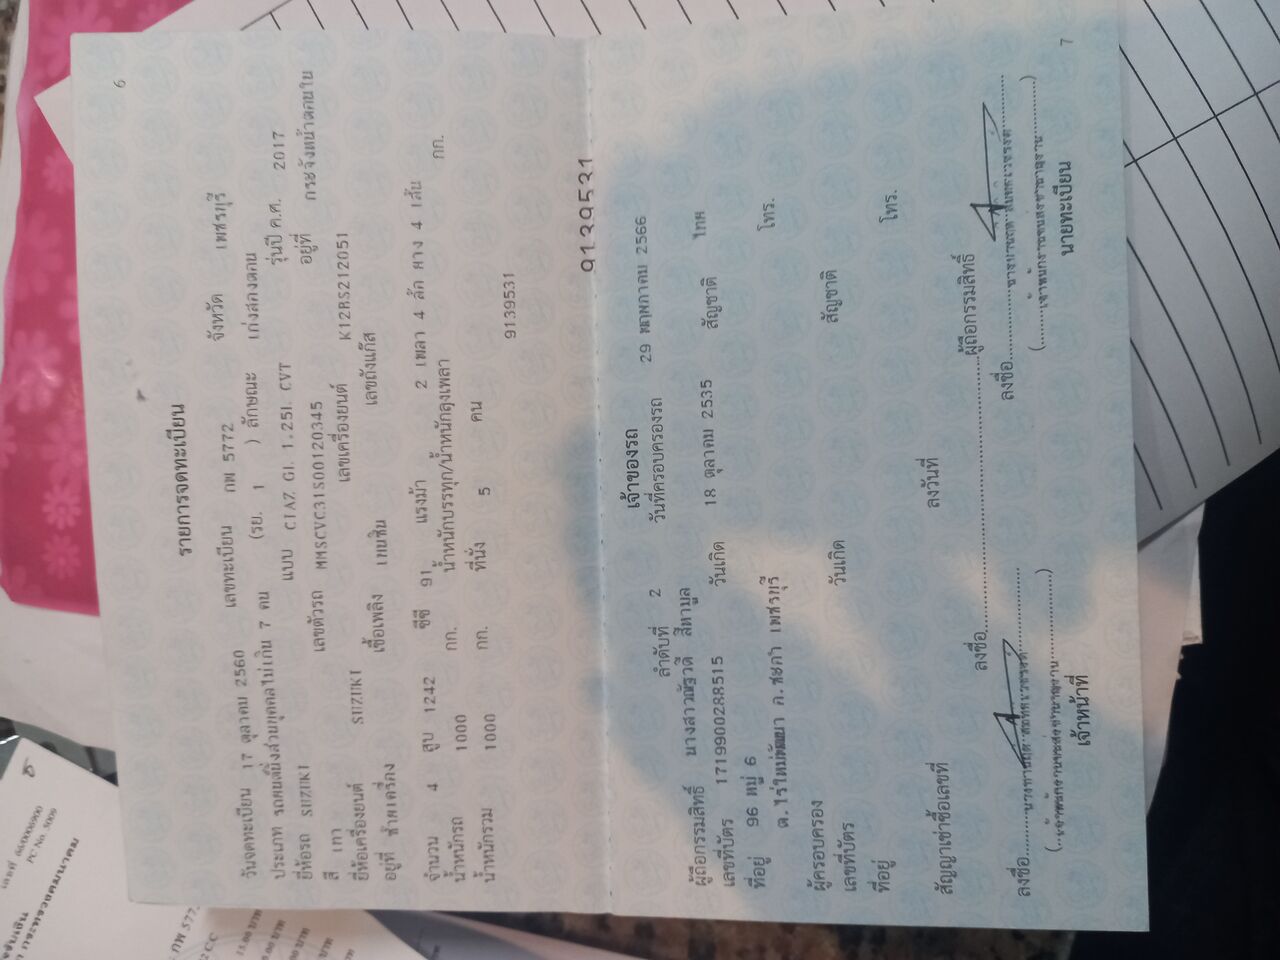 6
รายการจดทะเบียน
วันจดทะเบียน 17 ตุลาคม 2560 เลขทะเบียน กพ 5772 จังหวัด เพชรบุรี
ประเภท รถยนต์นั่งส่วนบุคคลไม่เกิน 7 คน (รย. 1 ) ลักษณะ เก๋งสองตอน
ยี่ห้อรถ SUZUKI แบบ CIAZ GL 1.25L CVT รุ่นปี ค.ศ. 2017
สี เทา เลขตัวรถ MMSCVC31S00120345 อยู่ที่
ยี่ห้อเครื่องยนต์ SUZUKI เลขเครื่องยนต์ K12BS212051
อยู่ที่ ซ้ายเครื่อง เชื้อเพลิง เบนซิน เลขถังแก๊ส
จำนวน 4 สูบ 1242 ซีซี 91 แรงม้า 2 เพลา 4 ล้อ ยาง 4 เส้น
น้ำหนักรถ 1000 กก. น้ำหนักบรรทุก/น้ำหนักลงเพลา กก.
น้ำหนักรวม 1000 กก. ที่นั่ง 5 คน
9139531
9139531
เจ้าของรถ
ลำดับที่ 2 วันที่ครอบครองรถ 29 พฤษภาคม 2566
ผู้ถือกรรมสิทธิ์ นางสาวณัฐวดี สีหาบูล
เลขที่บัตร 1719900288515 วันเกิด 18 ตุลาคม 2535 สัญชาติ ไทย
ที่อยู่ 96 หมู่ 6
ต.ไร่ใหม่พัฒนา อ.ชะอำ เพชรบุรี โทร.
ผู้ครอบครอง
เลขที่บัตร วันเกิด สัญชาติ
ที่อยู่ โทร.
สัญญาเช่าซื้อเลขที่ ลงวันที่
ลงชื่อ ผู้ถือกรรมสิทธิ์
ลงชื่อ ลงชื่อ
เจ้าหน้าที่ นายทะเบียน
7
PC No. 5009
15.00 บาท